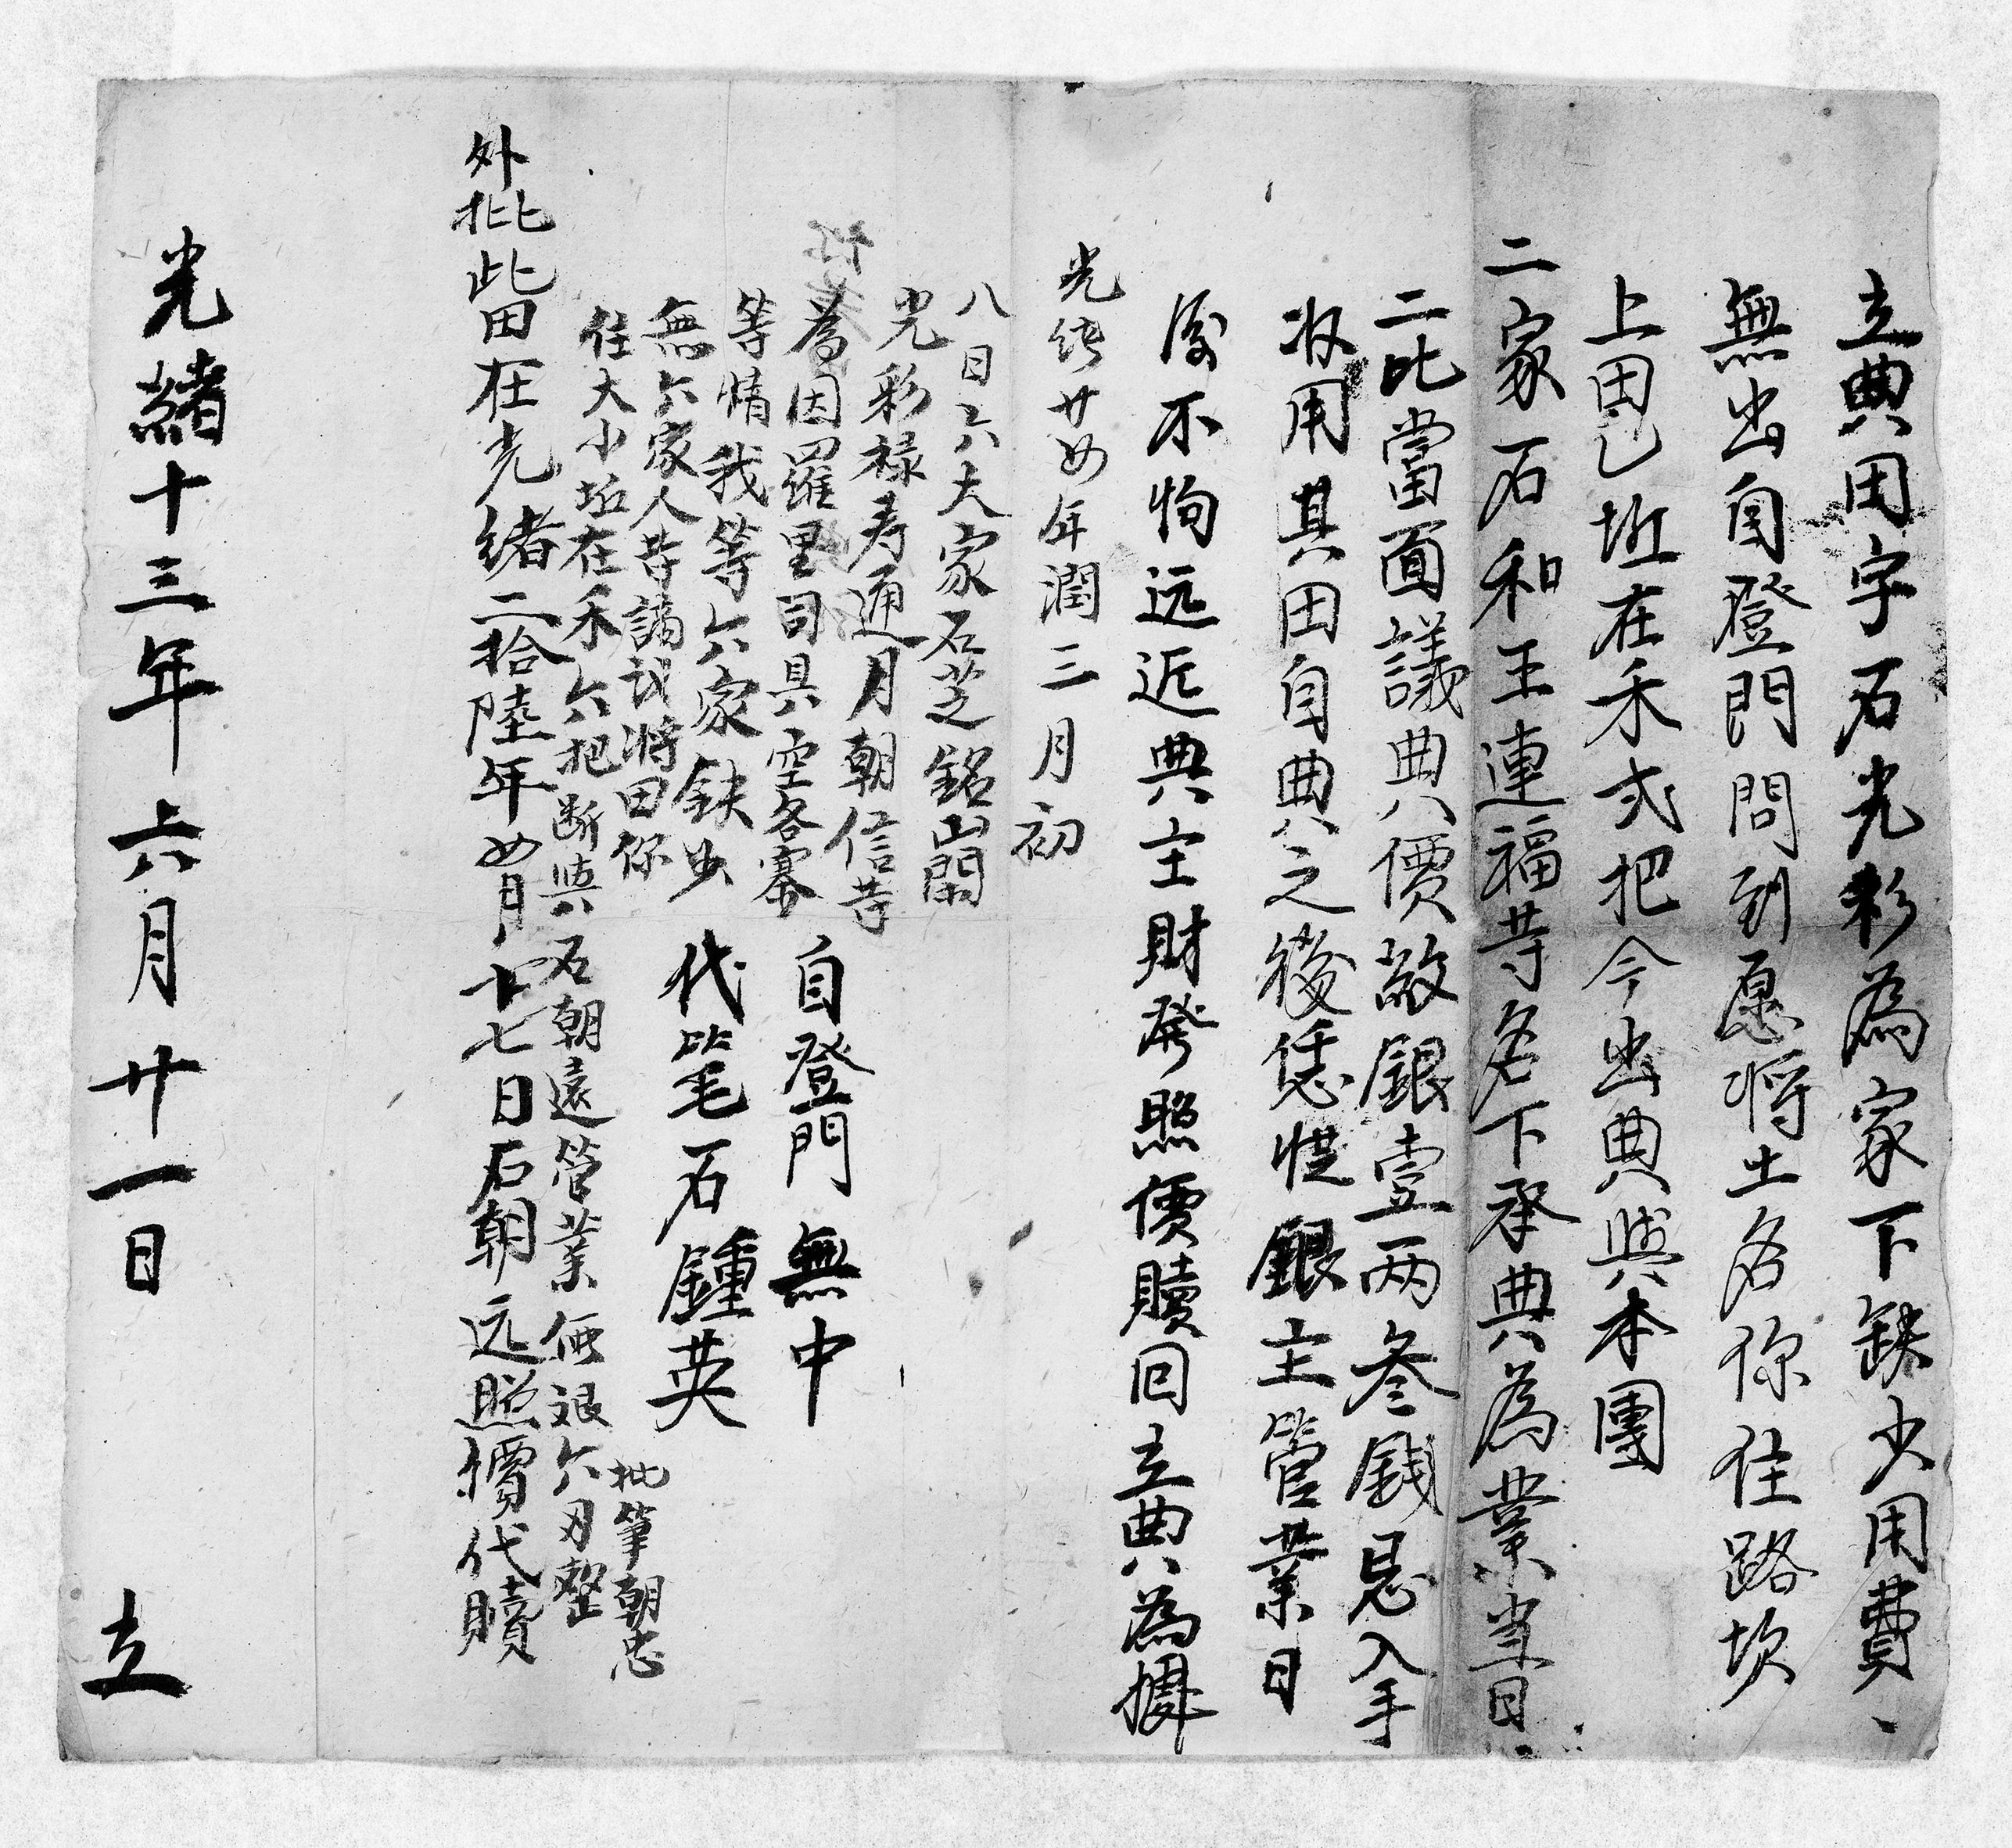 立典田字石光彩為家下缺少用費、
無出自登門問到愿將土名你住路坎
上田乙坵在禾弍把今出典與本團
二家石和王連福䓁名下承典為業当日、
二比當面議典價敨銀壹两叁錢㤙入手
收用其田自典之後恁㤙銀主管業日
後不拘远近典主財發照價贖回立典為據
光绪廿四年潤三月初
八日六大家石芝銘山開
光彩禄寿通月朝信䓁
為因羅里司具空各寨
等情我等六家缺少
無六家人䓁謪議將田你
住大小坵在禾六把断與石朝遠管業価艮六刃整
批筆朝忠
自登門 無中
代笔石鍾英
外批此田在光緒二拾陸年四月十七日石朝远照價代贖
光緒十三年六月廿一日 立